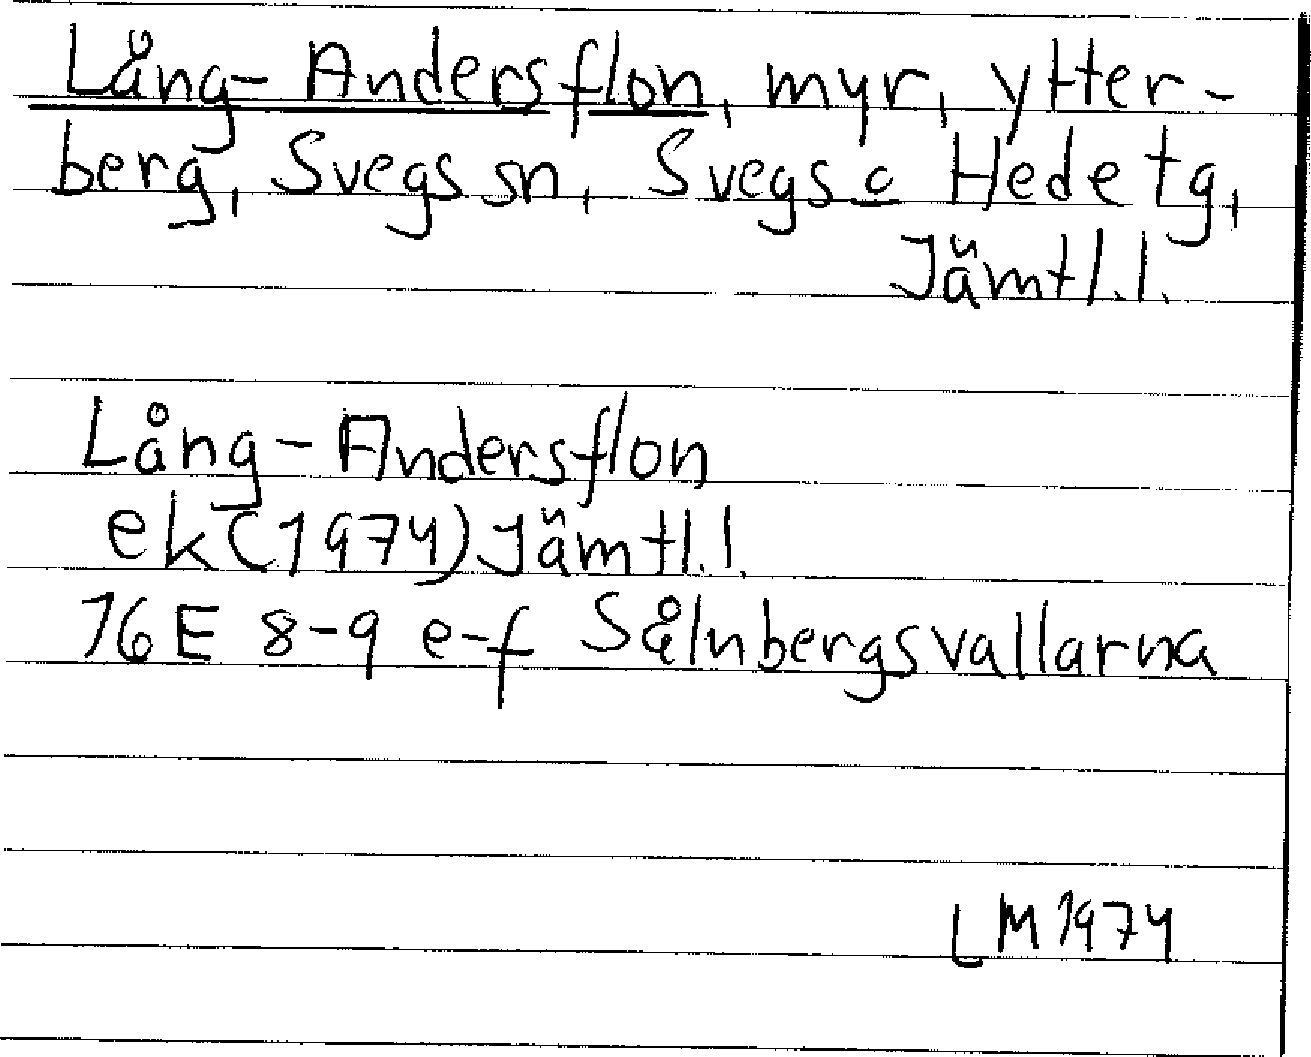 Lång-Andersflon, myr, ytter-
berg, Svegs sn, Svegs o Hede tg,
Jämtl.l.
Lång-Andersflon
ek(1974)Jämtl.l.
16E 8-9 e-f Sålnbergsvallarna
LM 1974